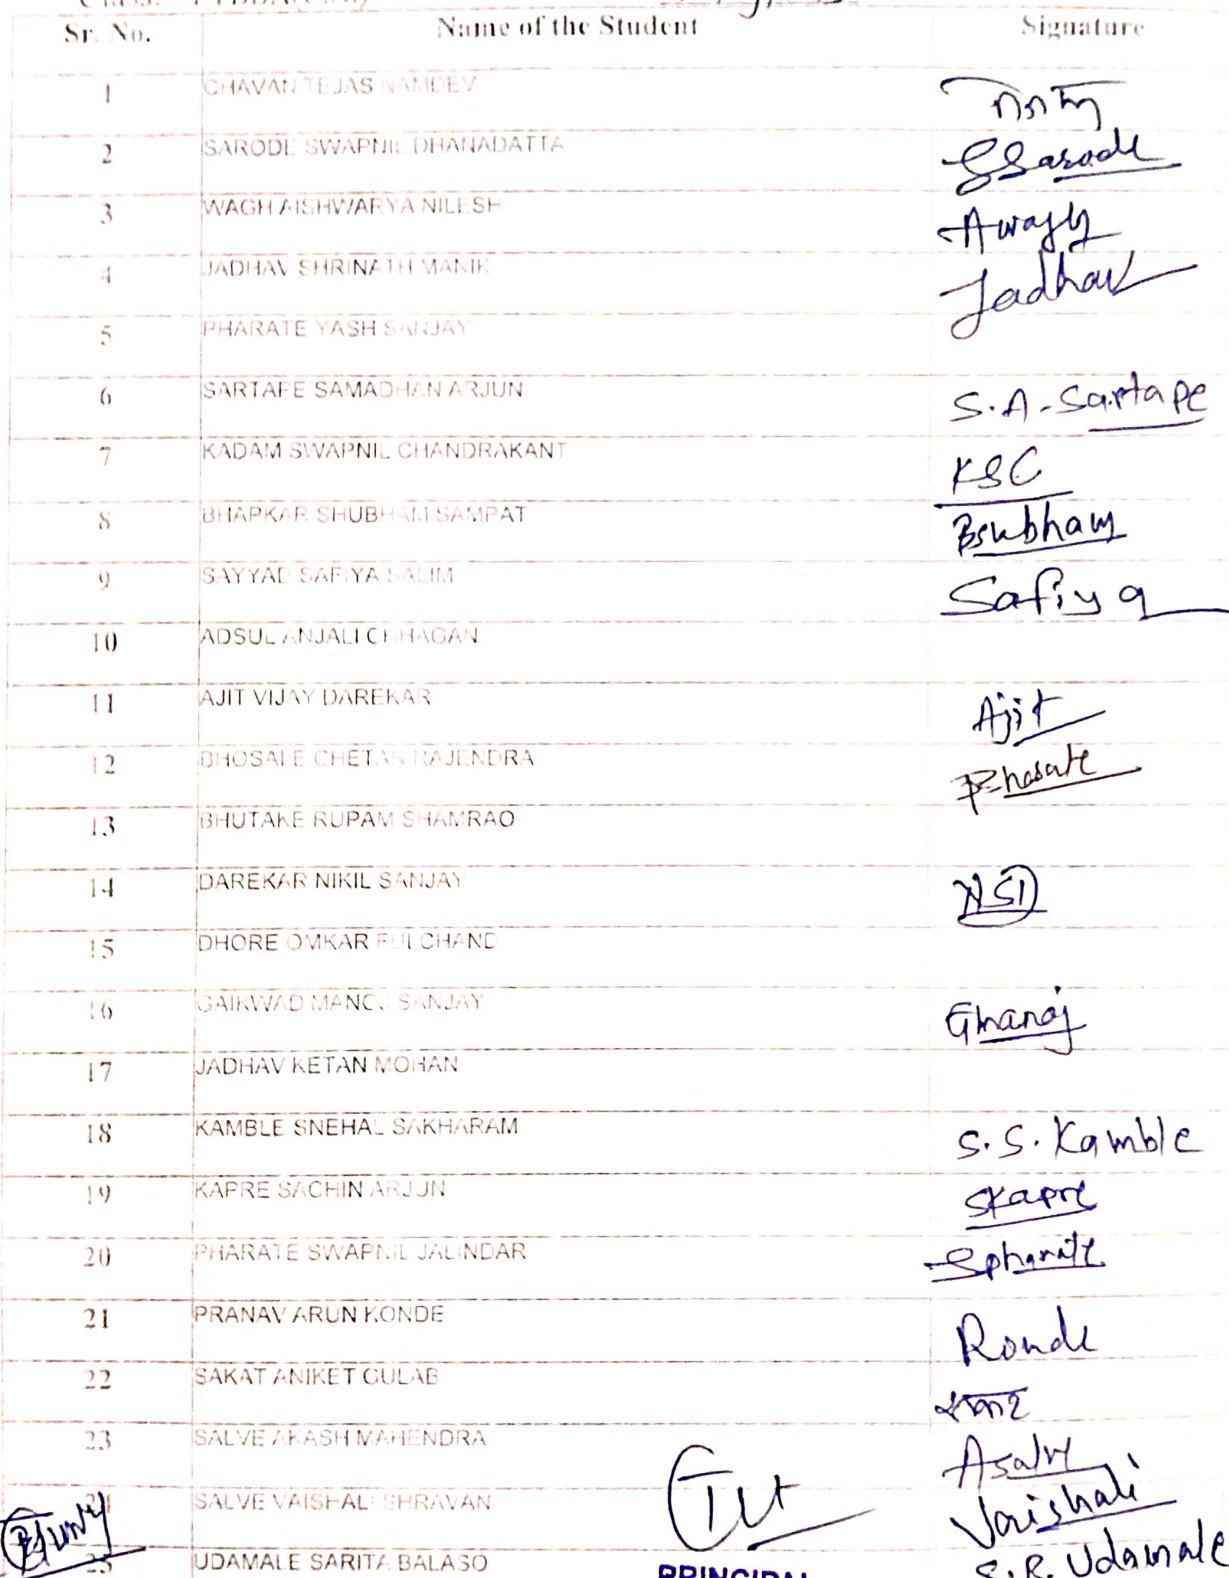 Sr. No. Name of the Student Signature
1 CHAVAN TEJAS NAMDEV
2 SARODE SWAPNIL DHANADATTA SSarode
3 WAGH AISHWARYA NILESH Awagh
4 JADHAV SHRINATH MANIK Jadhav
5 PHARATE YASH SANJAY
6 SARTAPE SAMADHAN ARJUN S.A-Sartape
7 KADAM SWAPNIL CHANDRAKANT KSC
8 BHAPKAR SHUBHAM SAMPAT Bsubham
9 SAYYAD SAFIYA SALIM Safiya
10 ADSUL ANJALI CHHAGAN
11 AJIT VIJAY DAREKAR Ajit
12 BHOSALE CHETAN RAJENDRA
13 BHUTAKE RUPAM SHAMRAO
14 DAREKAR NIKIL SANJAY NSD
15 DHORE OMKAR FULCHAND
16 GAIKWAD MANOJ SANJAY Gmanoj
17 JADHAV KETAN MOHAN
18 KAMBLE SNEHAL SAKHARAM S.S. Kamble
19 KAPRE SACHIN ARJUN Skapre
20 PHARATE SWAPNIL JALINDAR Spharate
21 PRANAV ARUN KONDE
22 SAKAT ANIKET GULAB
23 SALVE AKASH MAHENDRA Asalve
24 SALVE VAISHALI SHRAVAN Vaishali
25 UDAMALE SARITA BALASO S.B. Udamale
PRINCIPAL